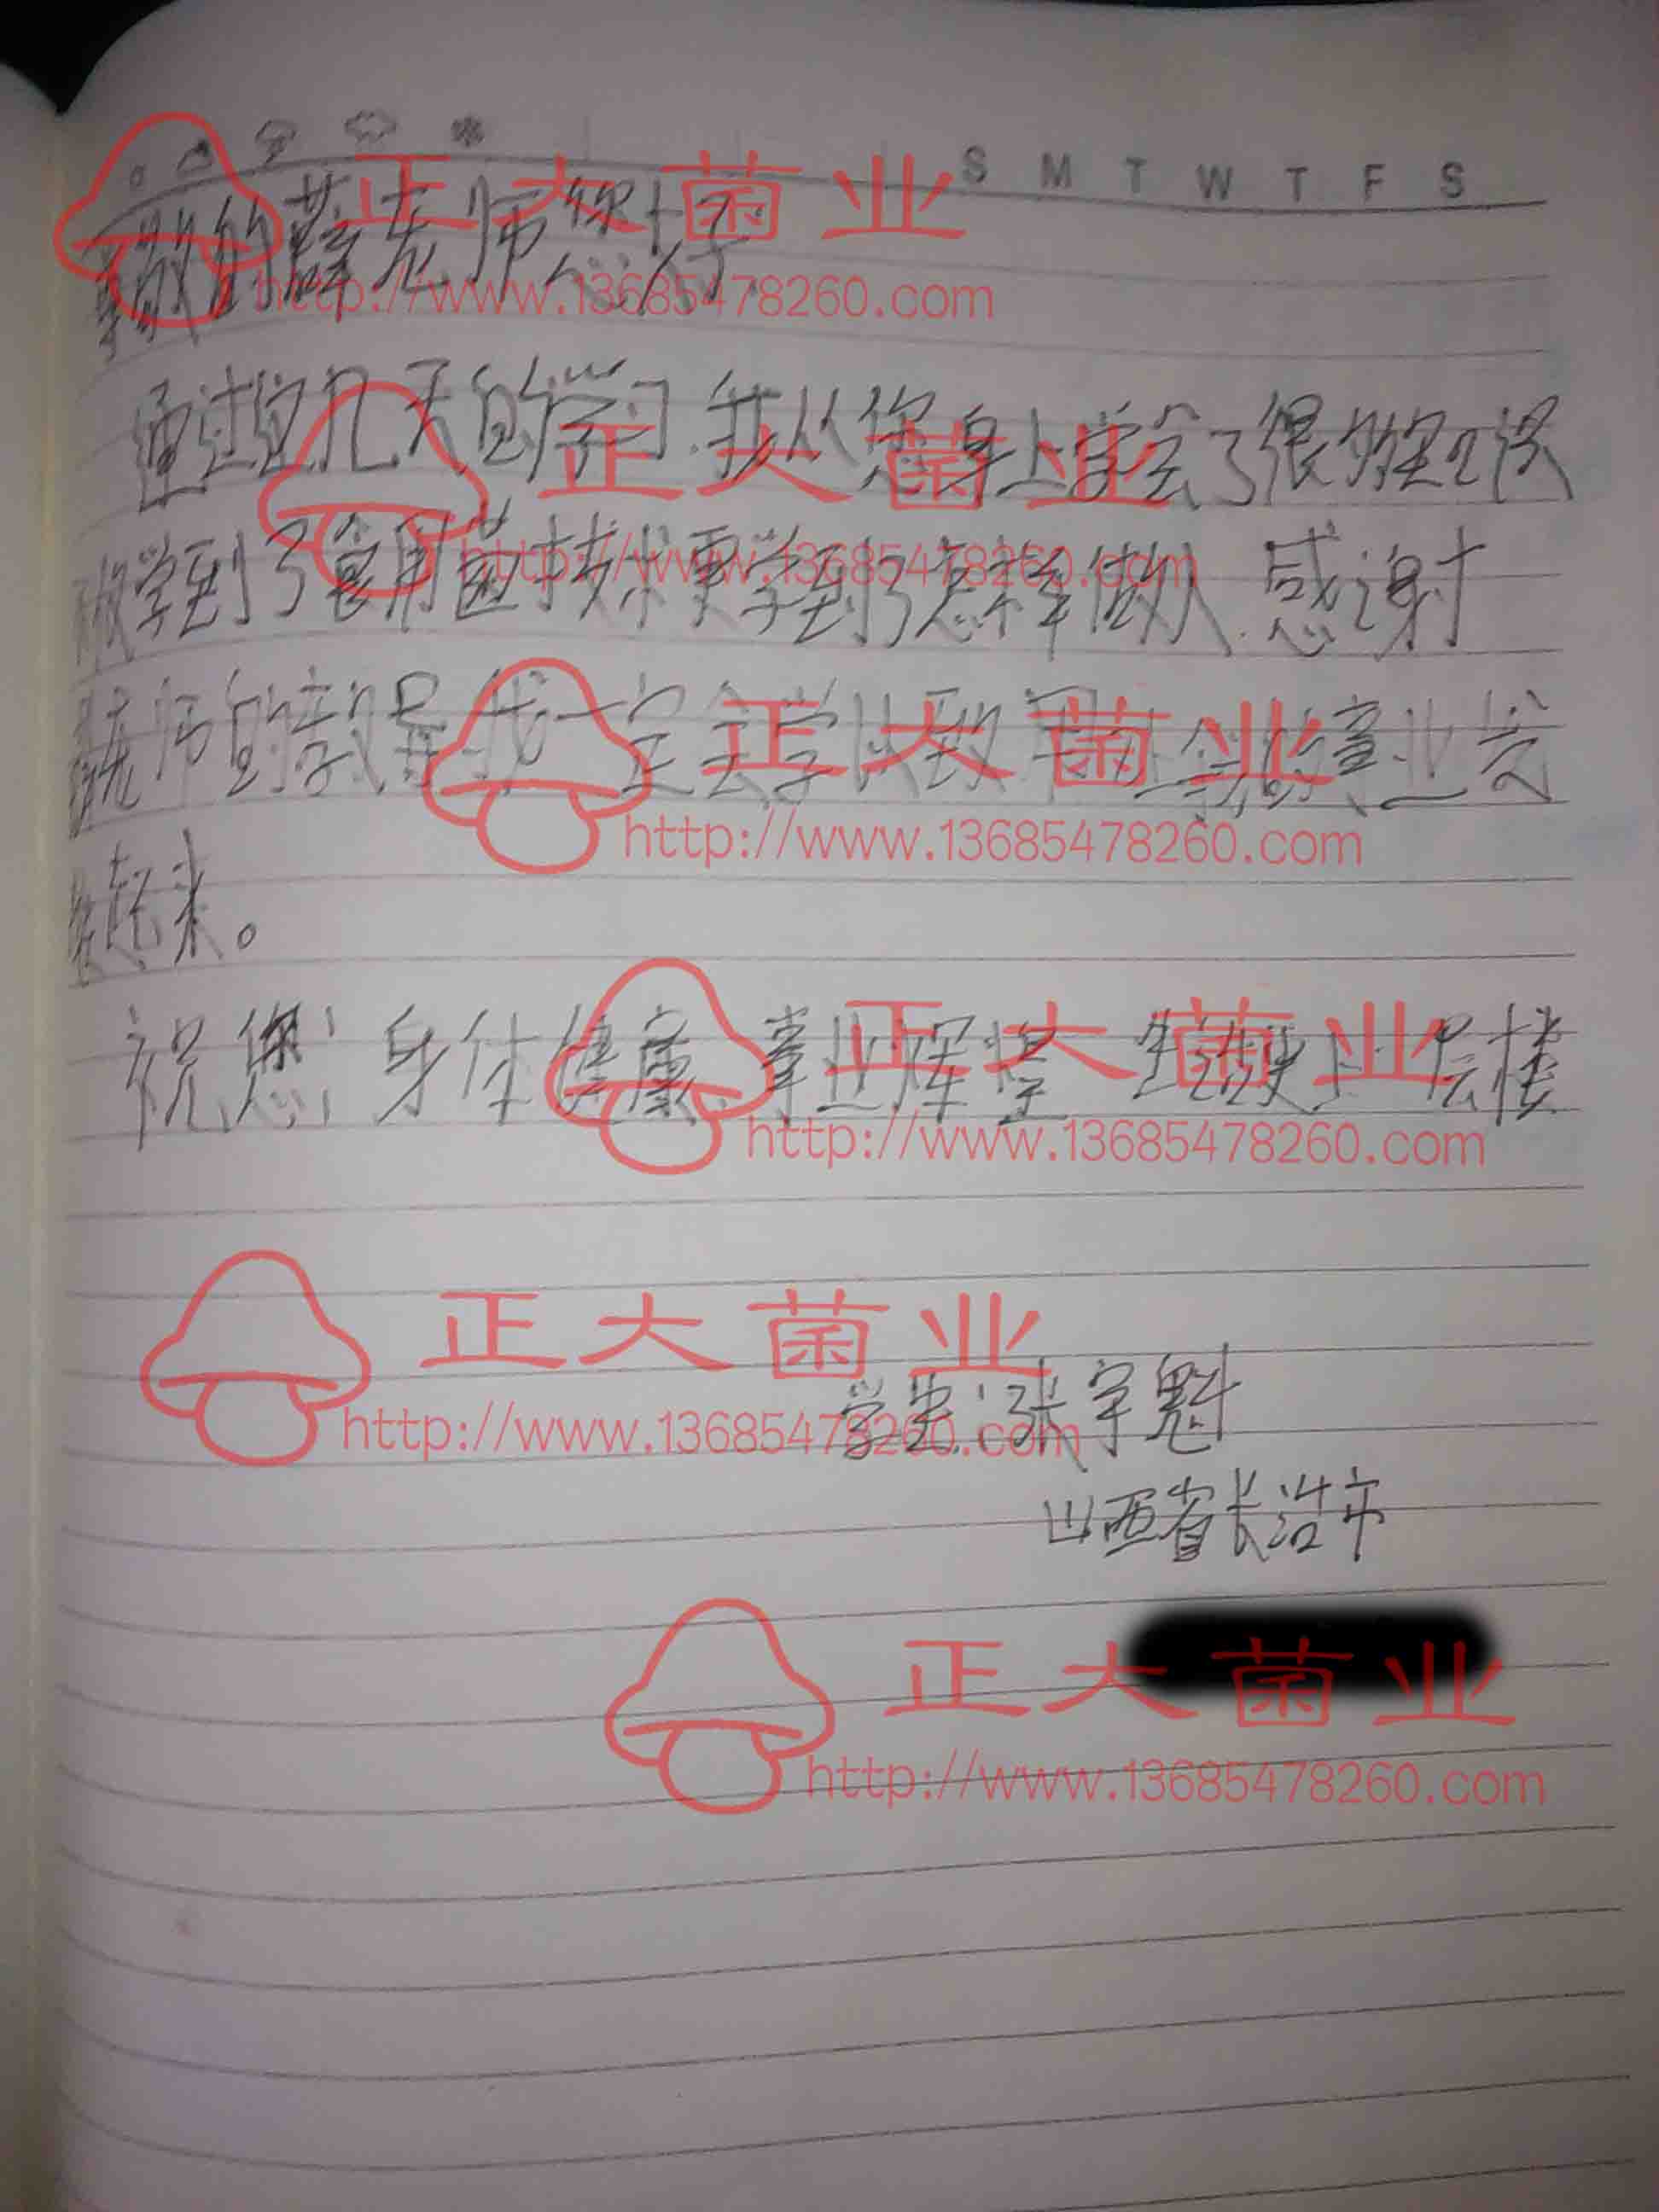 S M T W T F S
尊敬的薛老师您好:
通过这几天的学习.我从您身上学会了很多知识
学到了食用菌技术更学到了怎样做人.感谢
薛老师的教导我一定会学以致用 事业发
展起来。
祝您: 身体健康、事业辉煌 生意更上一层楼
学生:张宇魁
山西省长治市
正大菌业
http://www.13685478260.com
正大菌业
http://www.13685478260.com
正大菌业
http://www.13685478260.com
正大菌业
http://www.13685478260.com
正大菌业
http://www.13685478260.com
正大菌业
http://www.13685478260.com